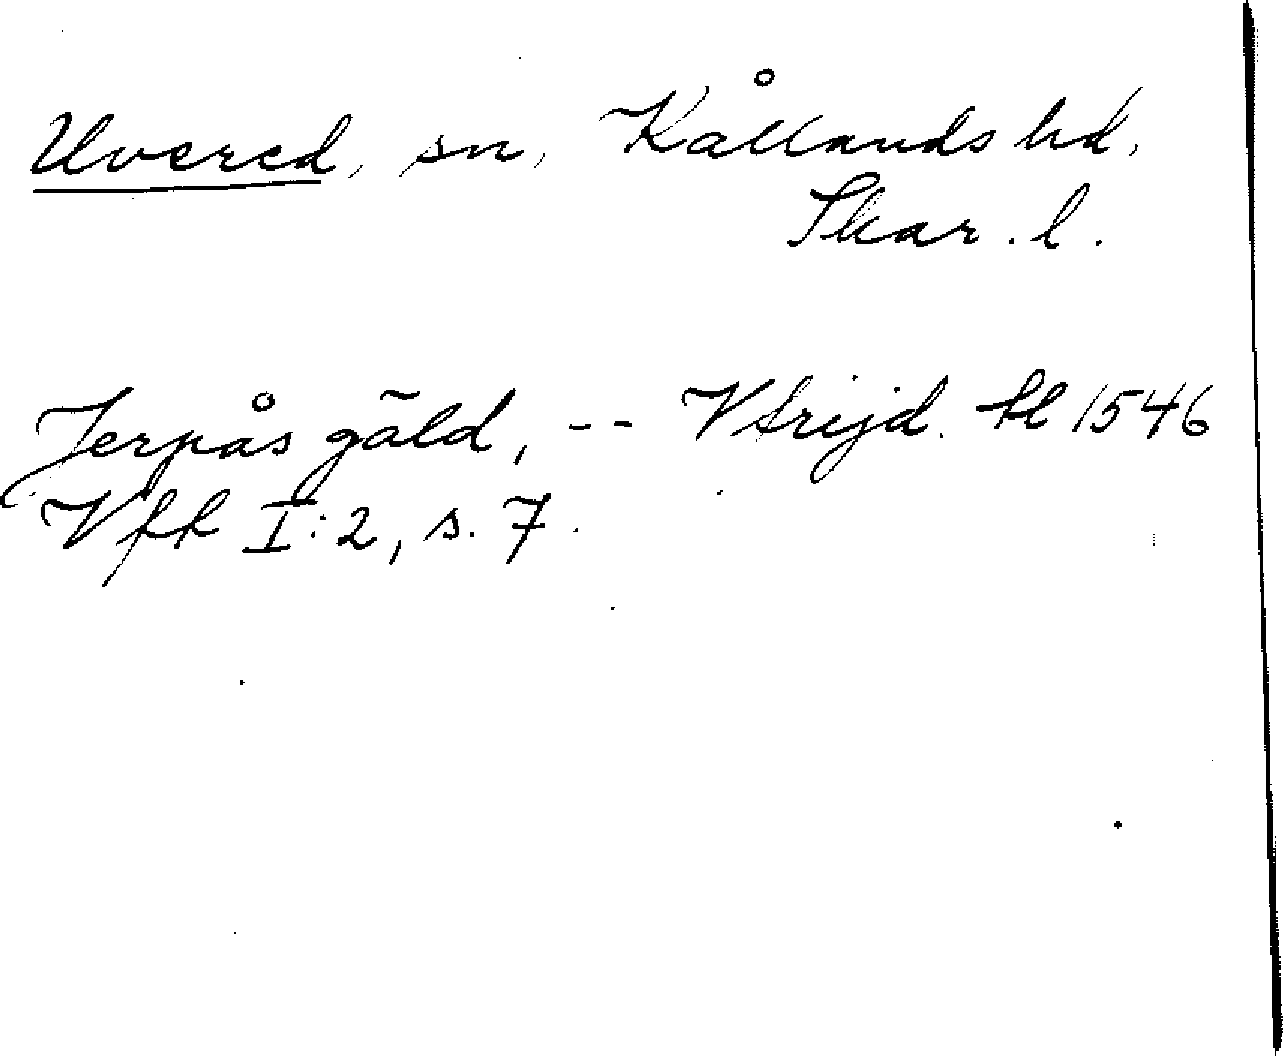 Uvered, sn, Kållands hd,
Skar. l.
Jerpås gäld, -- Vtrijd. kl 1546
Vfk I:2, s. 7.